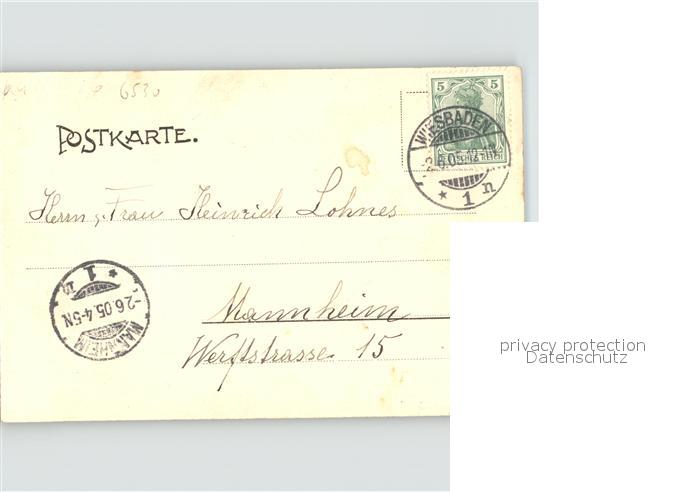 6530
POSTKARTE.
5 5
WIESBADEN
.6.05.12-1N.
* 1 n
Herrn u. Frau Heinrich Lohnes
Mannheim
Werftstrasse 15
MANNHEIM
-2.6.05.4-5N
* 1
privacy protection
Datenschutz